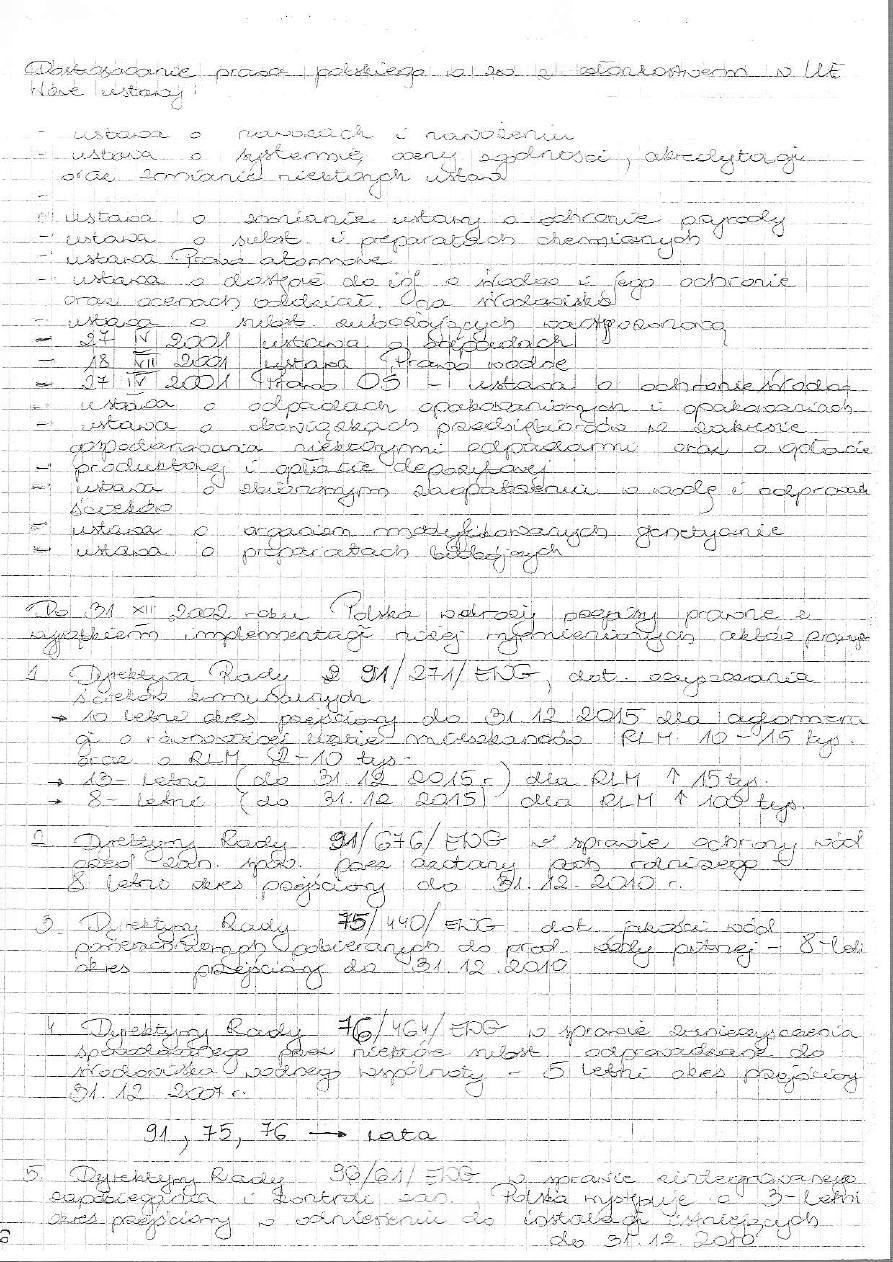 Dostosowanie prawa polskiego w zw z członkostwem w UE
Nowe ustawy:
- ustawa o nawozach i nawożeniu
- ustawa o systemie oceny zgodności, akredytacji
oraz zmianie niektórych ustaw
-
- ustawa o zmianie ustawy o ochronie przyrody
- ustawa o subst. i preparatach chemicznych
- ustawa Prawo atomowe
- ustawa o dostępie do inf. o środow i jego ochronie
oraz ocenach oddział. na środowisko
- ustawa o subst. zubożających warstwę ozonową
- 27 IV 2001 ustawa o odpadach
- 18 VII 2001 ustawa Prawo wodne
- 27 IV 2001 Prawo OŚ - ustawa o ochronie środow
- ustawa o odpadach opakowaniowych i opakowaniach
- ustawa o obowiązkach przedsiębiorców w zakresie
gospodarowania niektórymi odpadami oraz o opłacie
- produktowej i opłacie depozytowej
- ustawa o zbiorowym zaopatrzeniu w wodę i odprowadz
ścieków
- ustawa o organizm modyfikowanych genetycznie
- ustawa o preparatach biobójczych
Do 31 XII 2002 roku Polska wdroży przepisy prawne z
wyjątkiem implementacji niżej wymienionych aktów prawnych
1 Dyrektywa Rady 91/271/EWG, dot. oczyszczania
ścieków komunalnych
→ 10 letni okres przejściowy do 31.12 2015 dla aglomera
cji o równoważnej liczbie mieszkańców RLM 10-15 tys.
oraz o RLM 2-10 tys.
→ 13-letni (do 31.12 2015 r.) dla RLM ↑ 15 tys.
→ 8-letni (do 31.12 2015) dla RLM ↑ 100 tys.
2 Dyrektywy Rady 91/676/EWG w sprawie ochrony wód
przed zan. spow. przez azotany poch rolniczego -
8 letni okres przejściowy do 31.12.2010 r.
3 Dyrektywy Rady 75/440/EWG dot. jakości wód
powierzchniowych pobieranych do prod. wody pitnej - 8-letni
okres przejściowy do 31.12.2010
4 Dyrektywy Rady 76/464/EWG w sprawie zanieczyszczenia
spowodowanego przez niektóre subst. odprowadzane do
środowiska wodnego wspólnoty - 5 letni okres przejściowy
31.12 2007 r.
91, 75, 76 → lata
5 Dyrektywy Rady 96/61/EWG w sprawie zintegrowanego
zapobiegania i kontroli zan. Polska występuje o 3-letni
okres przejściowy w odniesieniu do instalacji istniejących
do 31.12.2010